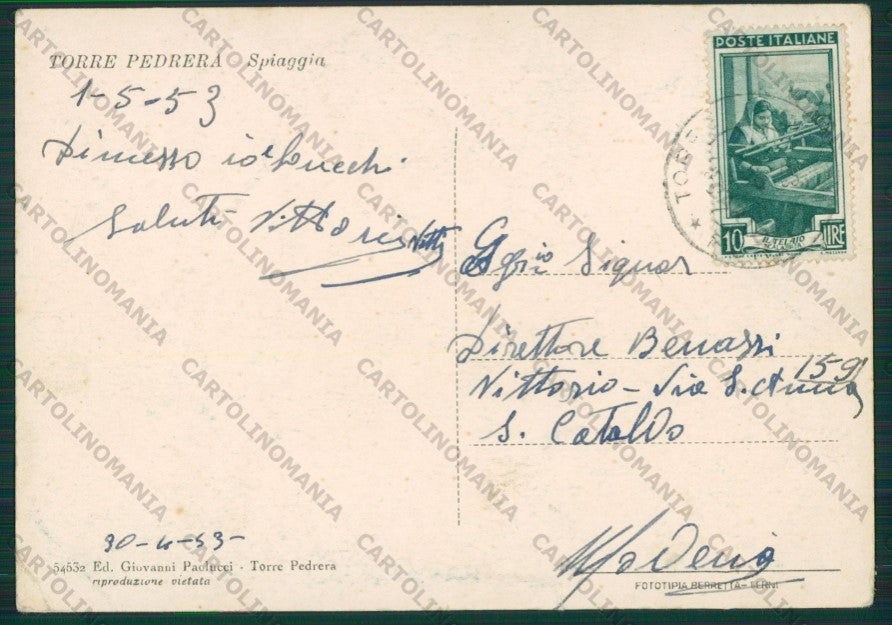 TORRE PEDRERA Spiaggia
1-5-53
Saluti Vittorio
POSTE ITALIANE
10 IL TELAIO LIRE
Signor
Direttore Benassi
Vittorio - Via S. Anna 159
S. Cataldo
Modena
30-4-53-
54532 Ed. Giovanni Paolucci - Torre Pedrera
riproduzione vietata
FOTOTIPIA BERRETTA - TERNI
CARTOLINOMANIA